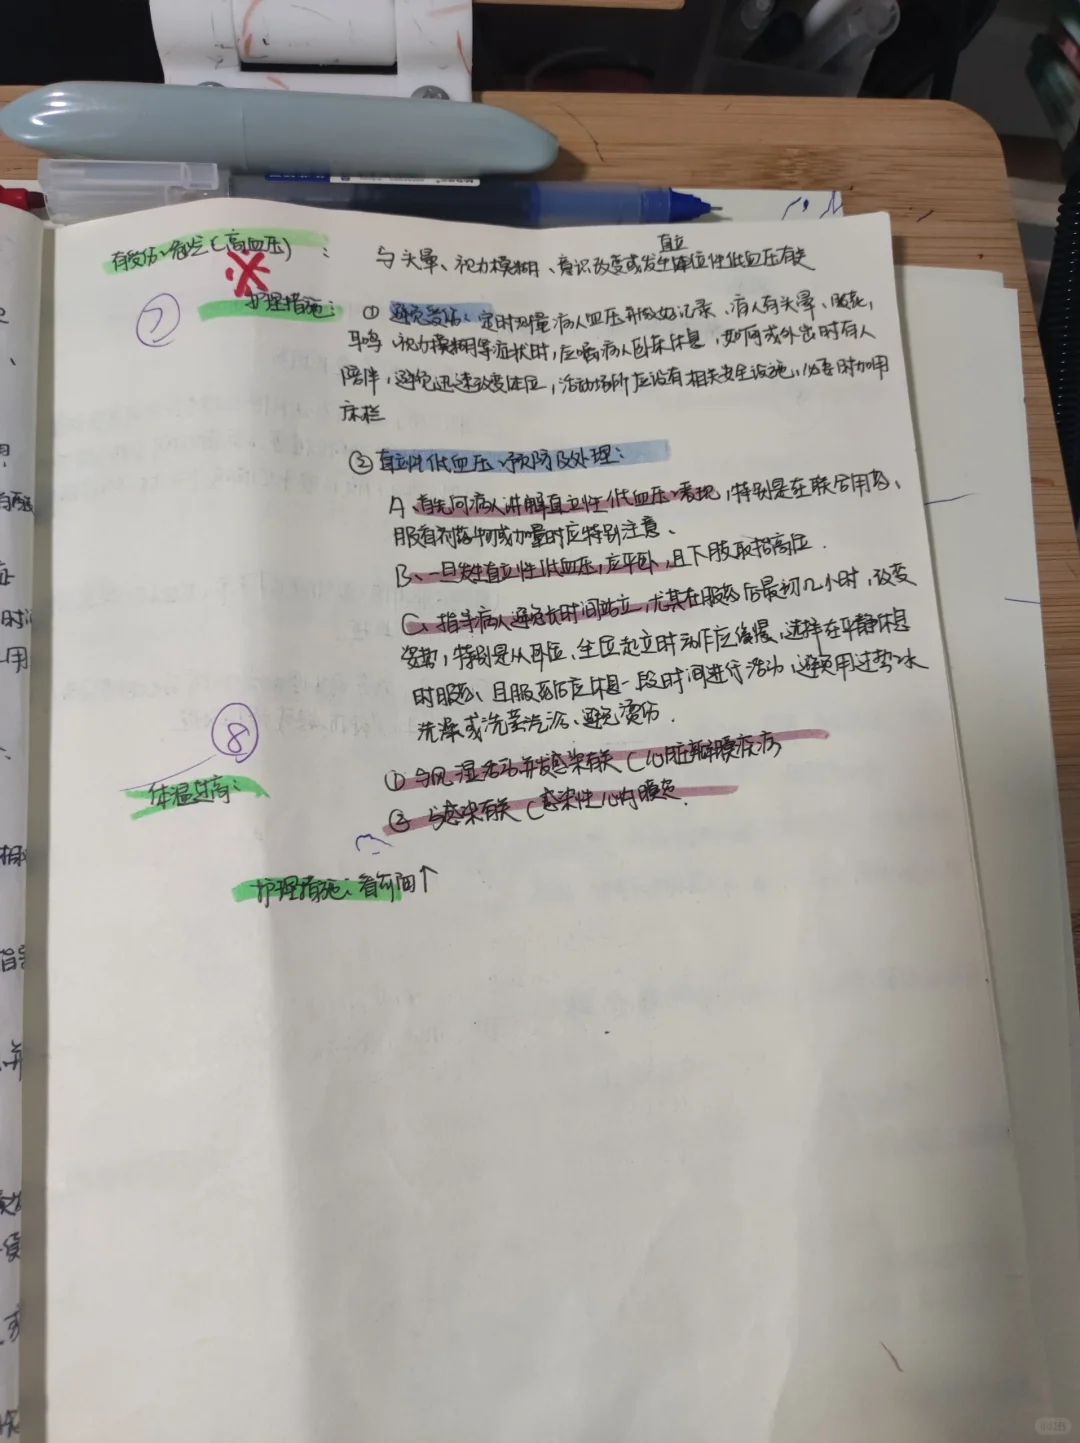 有受伤的危险(高血压): 与头晕、视力模糊、意识改变或发生直立性低血压有关
⑦
护理措施: ① 避免受伤: 定时测量病人血压并做好记录、病人有头晕、眼花,
耳鸣、视力模糊等症状时,应嘱病人卧床休息,如厕或外出时有人
陪伴,避免迅速改变体位,活动场所应设有相关安全设施,必要时加用
床栏
② 直立性低血压的预防及处理:
A、首先向病人讲解直立性低血压的表现,特别是在联合用药、
服首剂药物或加量时应特别注意、
B、一旦发生直立性低血压,应平卧,且下肢取抬高位.
C、指导病人避免长时间站立,尤其在服药后最初几小时,改变
姿势,特别是从卧位、坐位起立时动作应缓慢,选择在平静休息
时服药、且服药后应休息一段时间进行活动、避免用过热水
洗澡或洗蒸汽浴、避免烫伤.
⑧
体温过高: ① 与风湿活动并发感染有关(心脏瓣膜疾病
② 与感染有关(感染性心内膜炎.
护理措施: 看前面↑